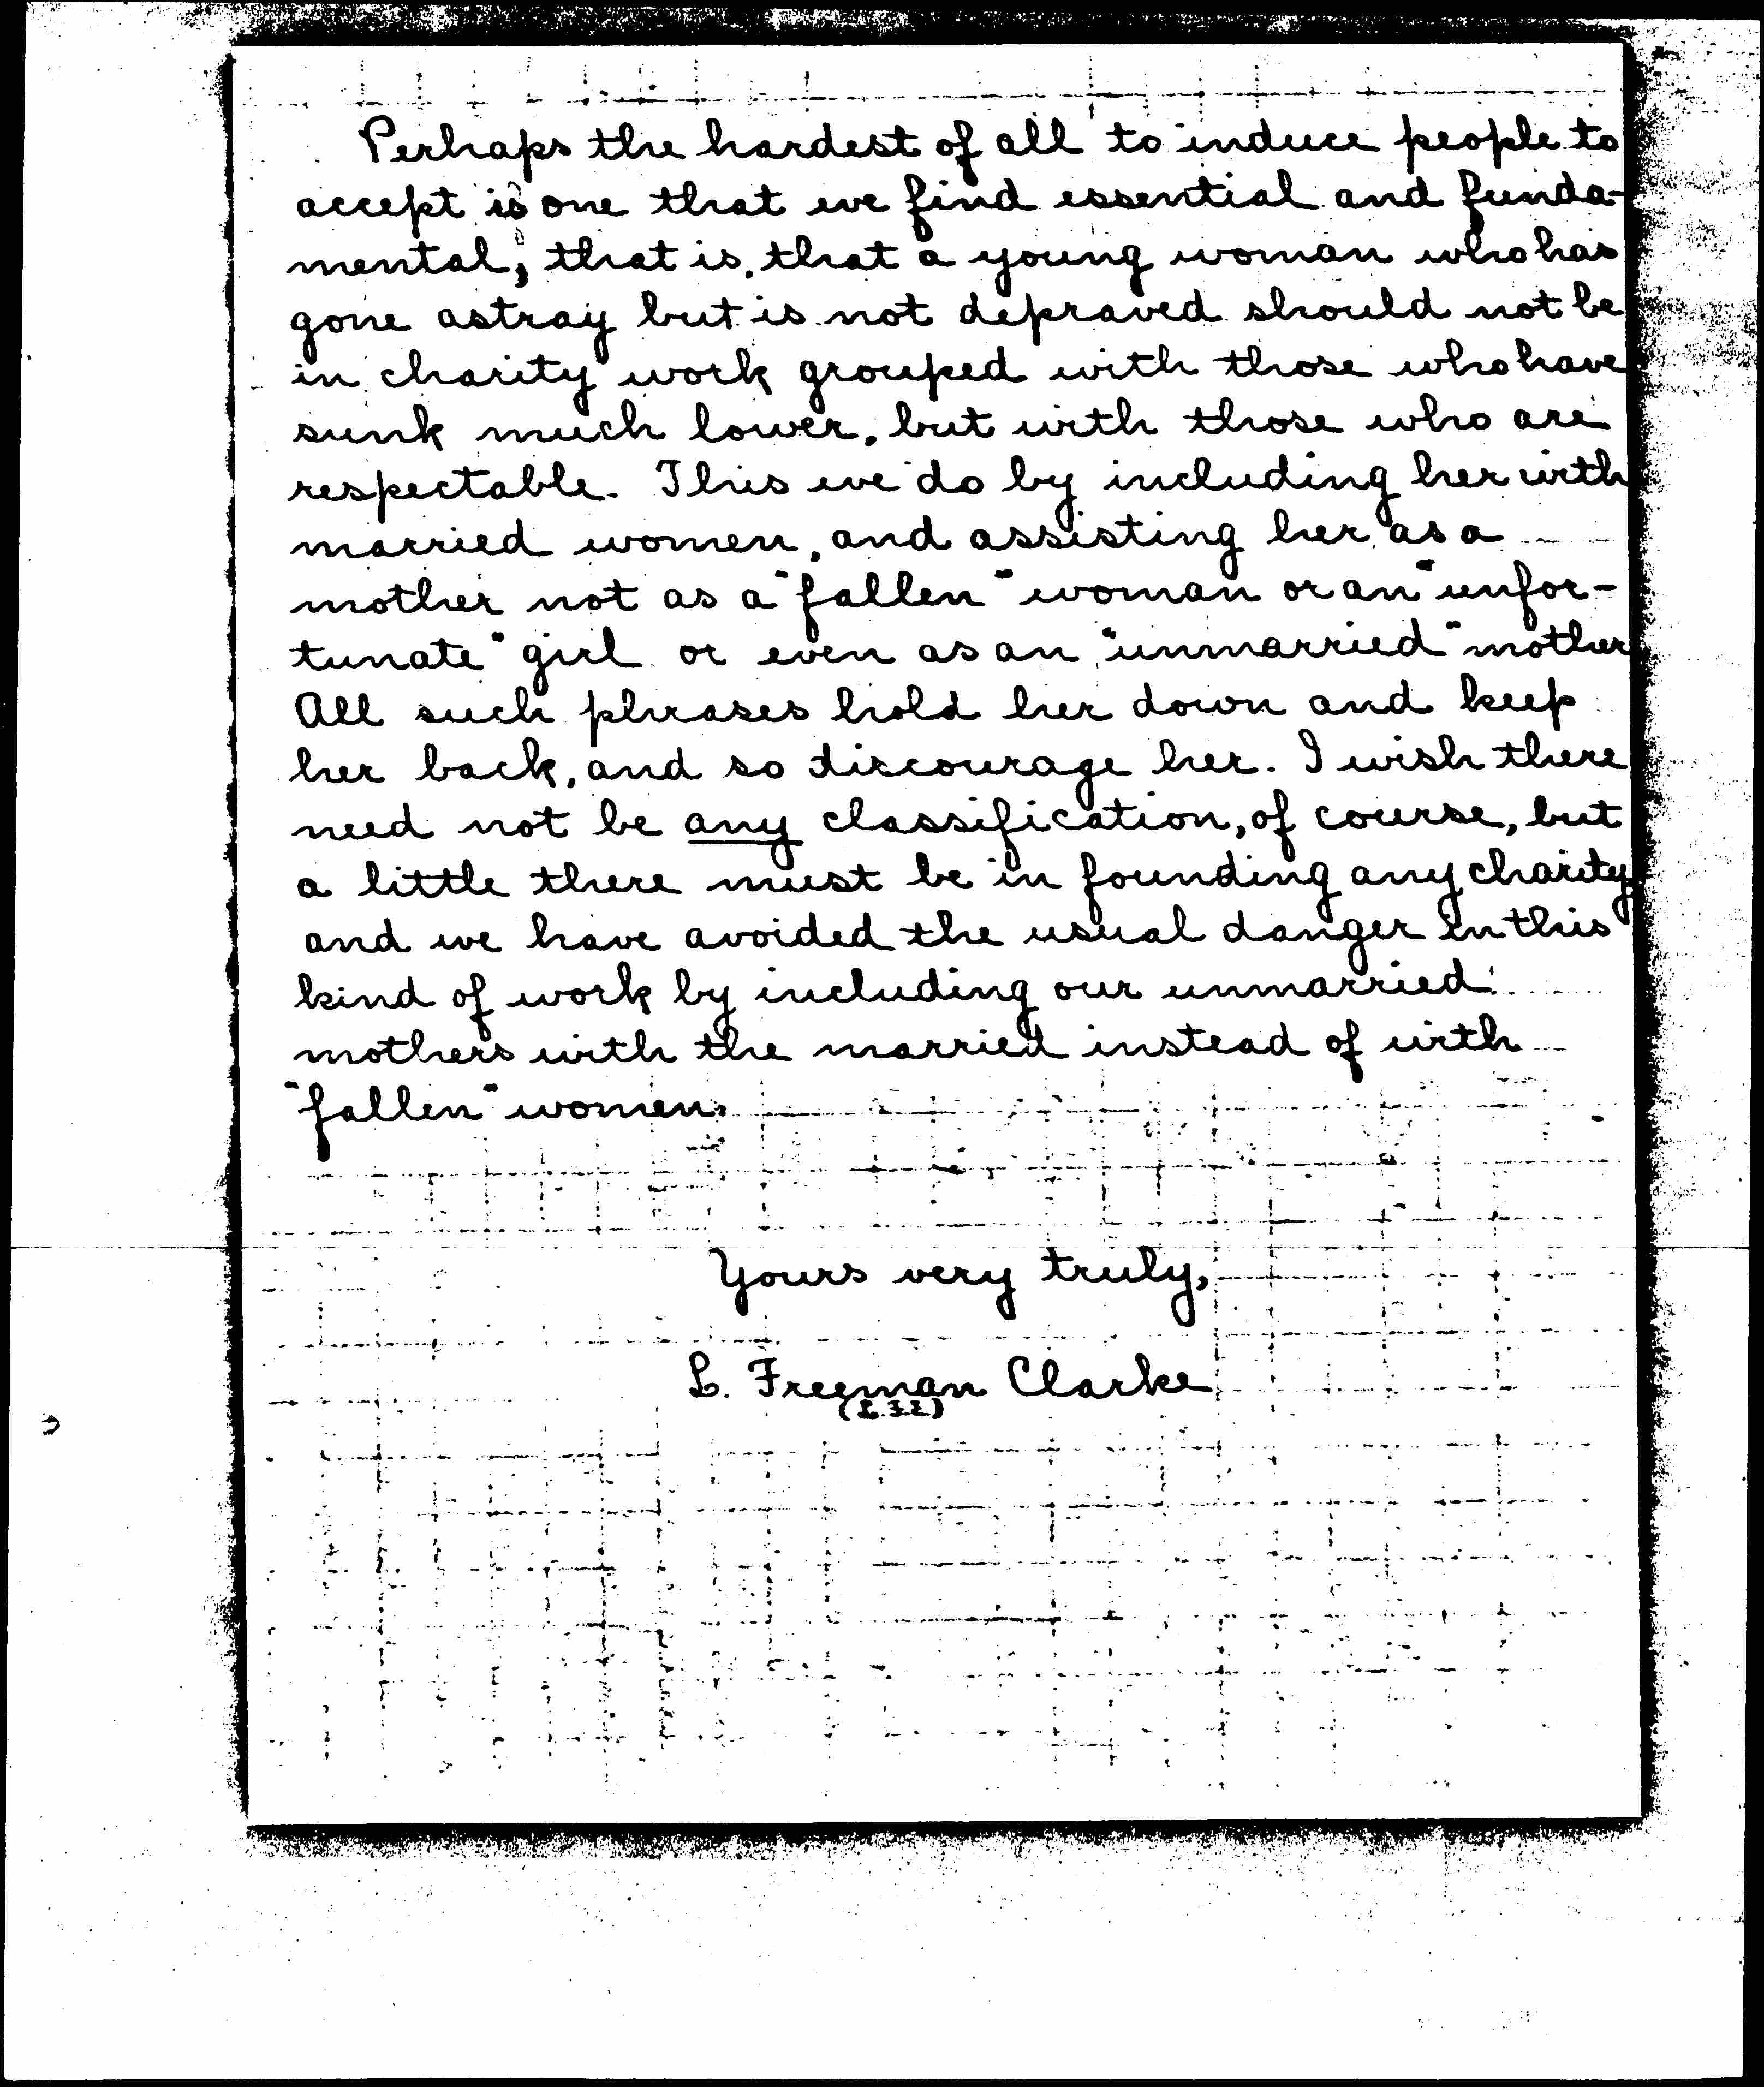 Perhaps the hardest of all to induce people to
accept is one that we find essential and funda-
mental, that is, that a young woman who has
gone astray but is not depraved should not be
in charity work grouped with those who have
sunk much lower, but with those who are
respectable. This we do by including her with
married women, and assisting her as a
mother not as a "fallen" woman or an "unfor-
tunate" girl or even as an "unmarried" mother
All such phrases hold her down and keep
her back, and so discourage her. I wish there
need not be any classification, of course, but
a little there must be in founding any charity
and we have avoided the usual danger in this
kind of work by including our unmarried
mothers with the married instead of with
"fallen" women.
Yours very truly,
L. Freeman Clarke